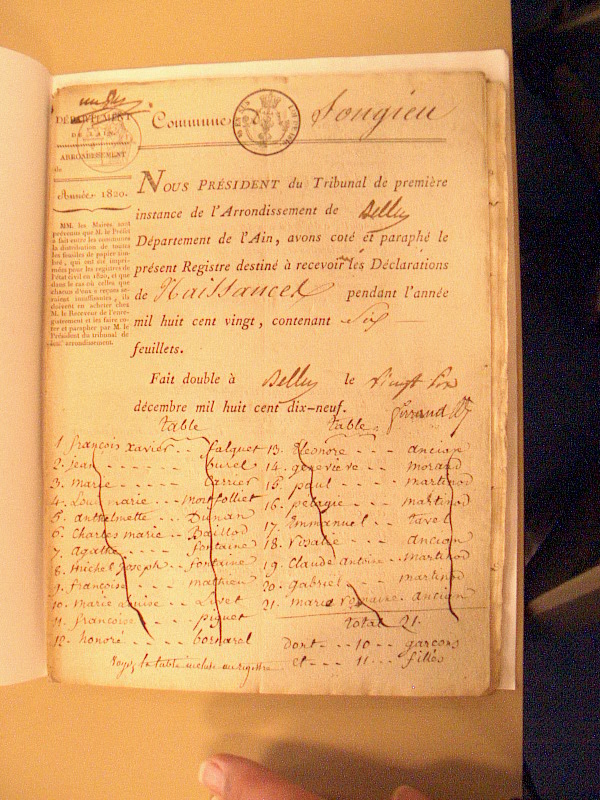 DÉPARTEMENT
DE L'AIN.
ARRONDISSEMENT
de
Année 1820.
MM. les Maires sont
prévenus que M. le Préfet
a fait entre les communes
la distribution de toutes
les feuilles de papier timbré,
qui ont été imprimées
pour les registres de
l'état civil en 1820, et que
dans le cas où celles que
chacun d'eux a reçues seraient
insuffisantes, ils
doivent en acheter chez
M. le Receveur de l'enregistrement
et les faire coter
et parapher par M. le
Président du tribunal de
son arrondissement.
Commune de Jongieu
NOUS PRÉSIDENT du Tribunal de première
instance de l'Arrondissement de Belley
Département de l'Ain, avons coté et paraphé le
présent Registre destiné à recevoir les Déclarations
de Naissances pendant l'année
mil huit cent vingt, contenant Six
feuillets.
Fait double à Belley le Vingt Six
décembre mil huit cent dix-neuf. Giraud
table
1. françois xavier falquet
2. jean burel
3. marie Carrier
4. Louis marie Montfolliet
5. anthelmette Duman
6. Charles marie Baillod
7. agathe fontaine
8. Michel Joseph fontaine
9. françoise mathieu
10. Marie Louise Livet
11. françoise piguet
12. honoré bornarel
table
13. Eleonore ancian
14. genevieve morand
15. paul martinod
16. pelagie martinod
17. Emmanuel tavel
18. Rosalie ancian
19. Claude antoine martinod
20. gabriel martinod
21. marie Romaine ancian
Total 21.
dont 10 garçons
et 11 filles
Voyez la table incluse au registre